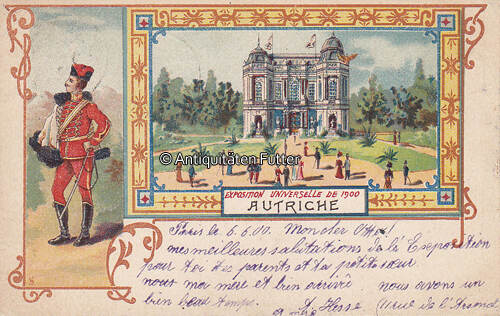 © Antiquitäten Futter
EXPOSITION UNIVERSELLE DE 1900
AUTRICHE
Paris le 6.6.00. Moncher Otto
mes meilleures salutations de l'Exposition
pour toi tes parents et ta petite sœur
nous moi mère et bien arrivée nous avons un
bien beau temps. A. Hesse